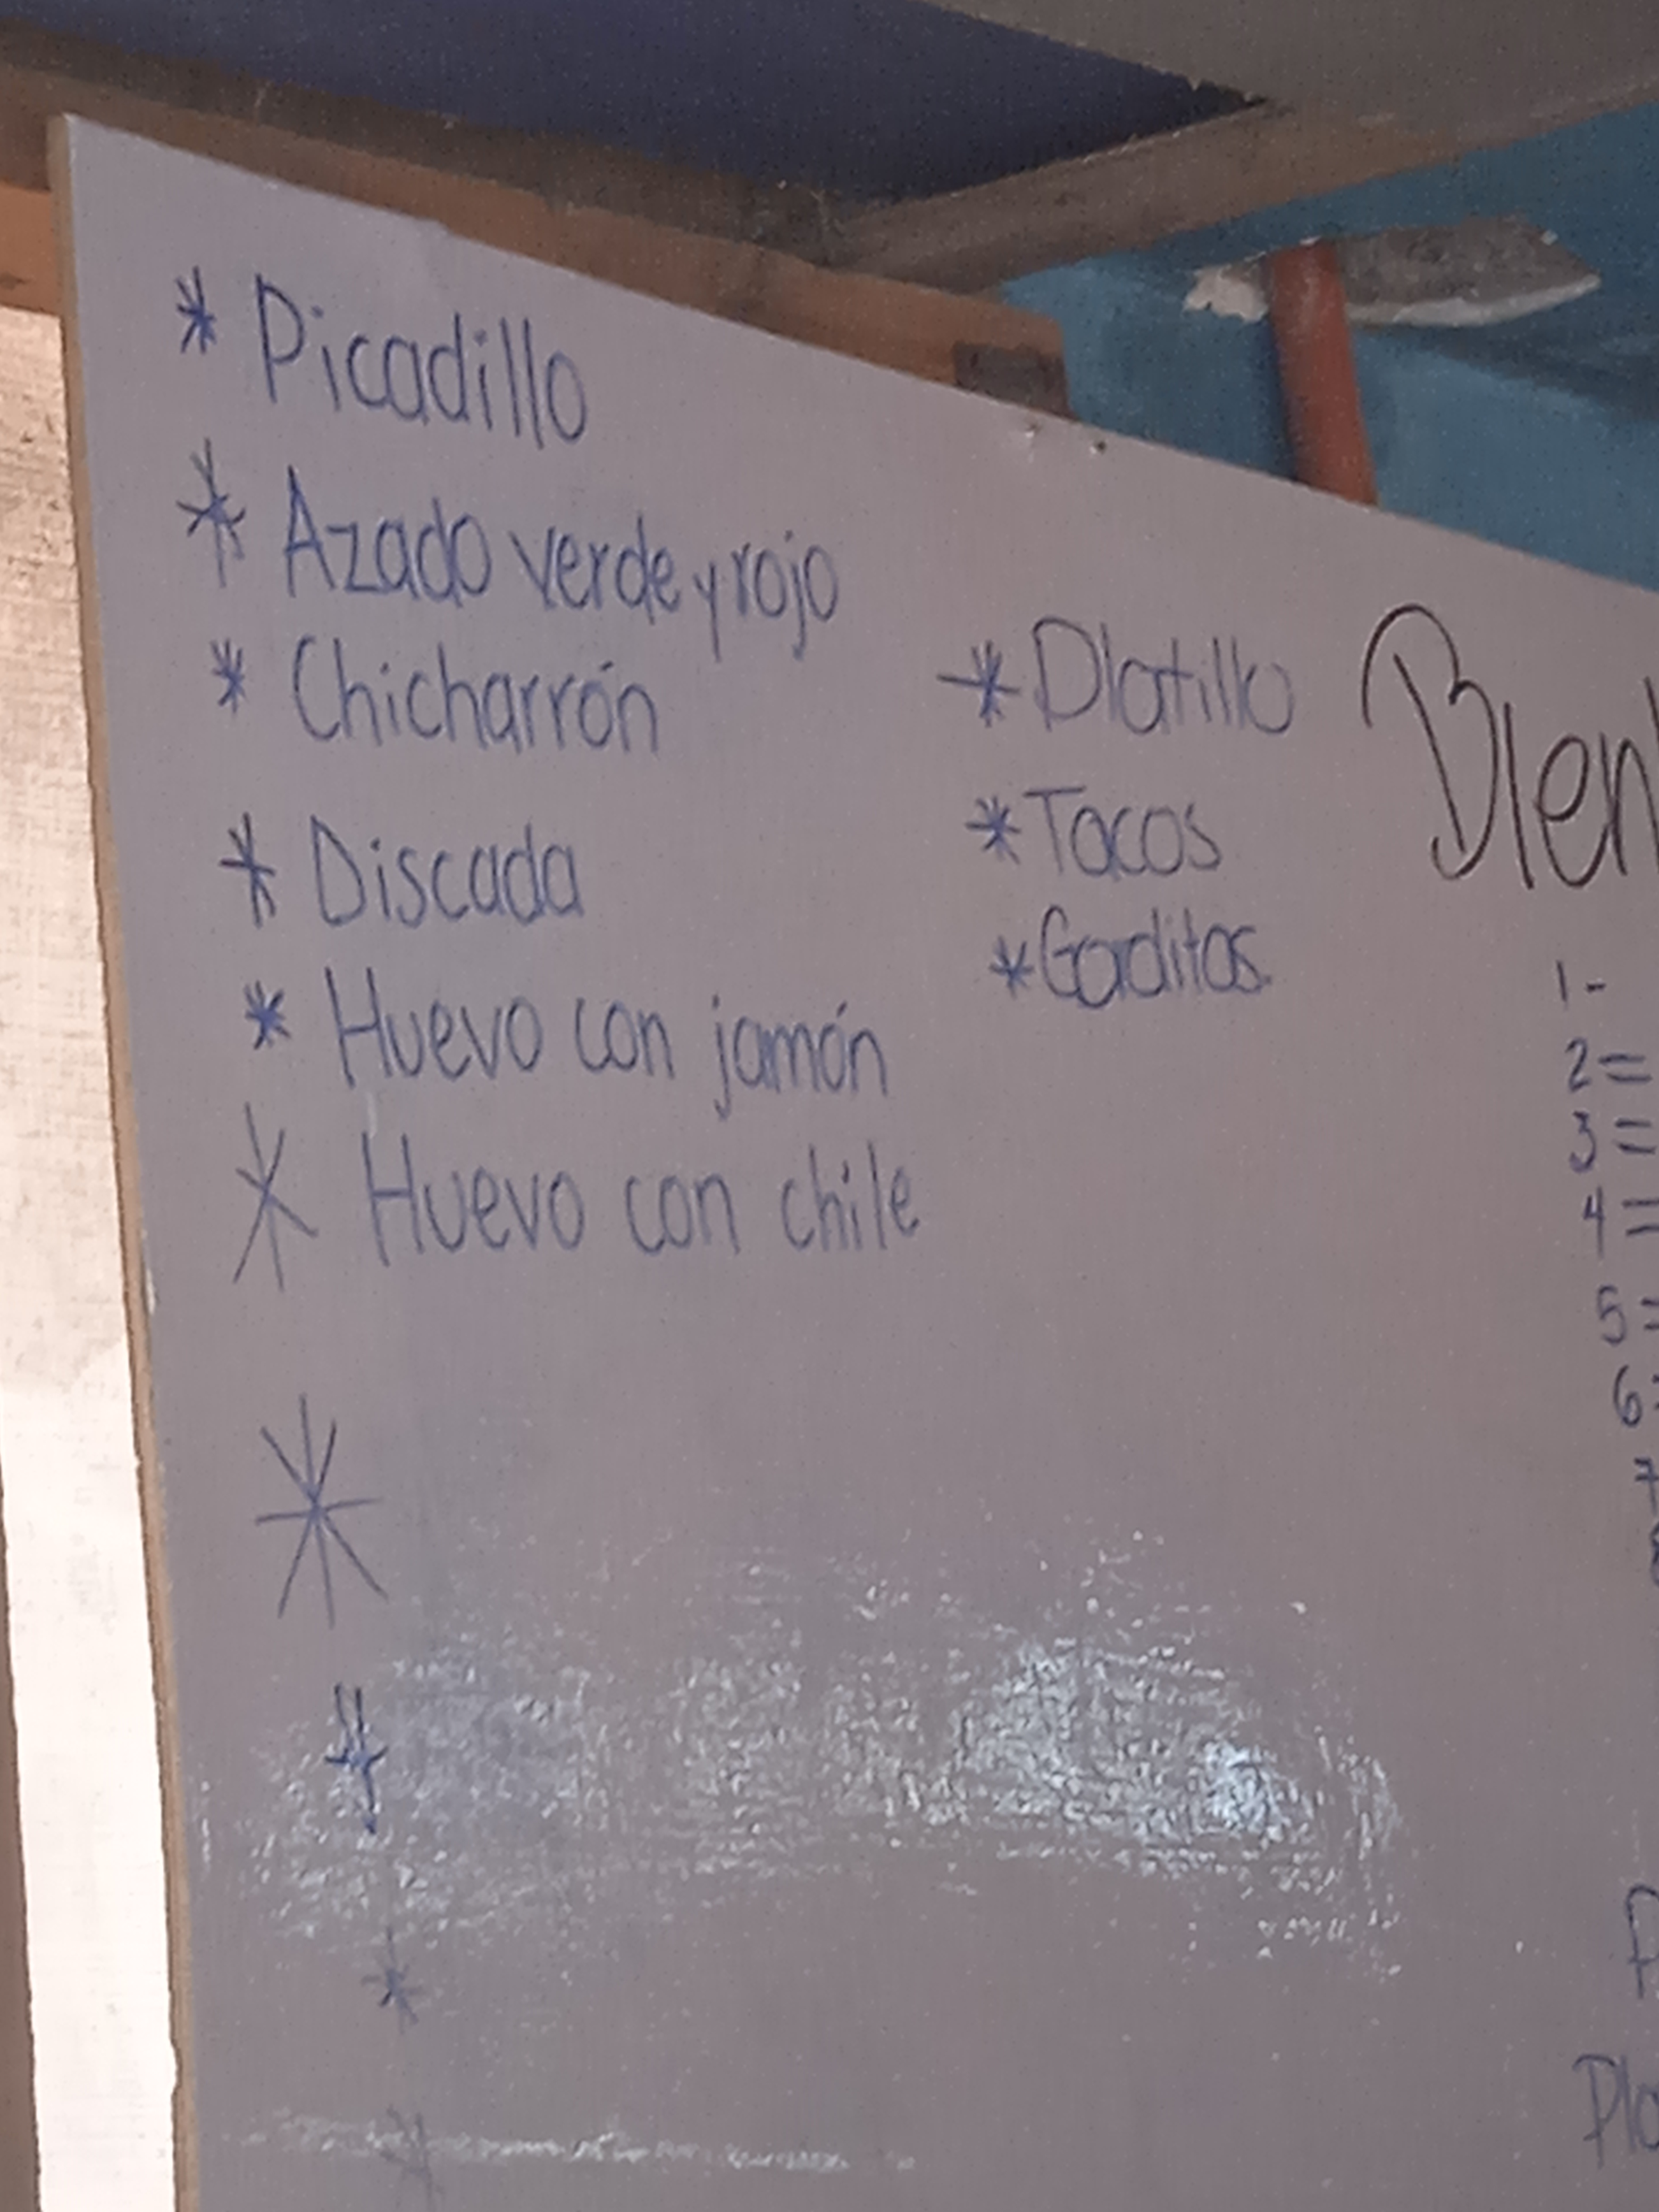 * Picadillo
* Azado verde y rojo
* Chicharrón
* Discada
* Huevo con jamón
* Huevo con chile
*
*
*
*
* Platillo
* Tacos
* Gorditas
Bien
1-
2=
3=
4=
5=
6=
7